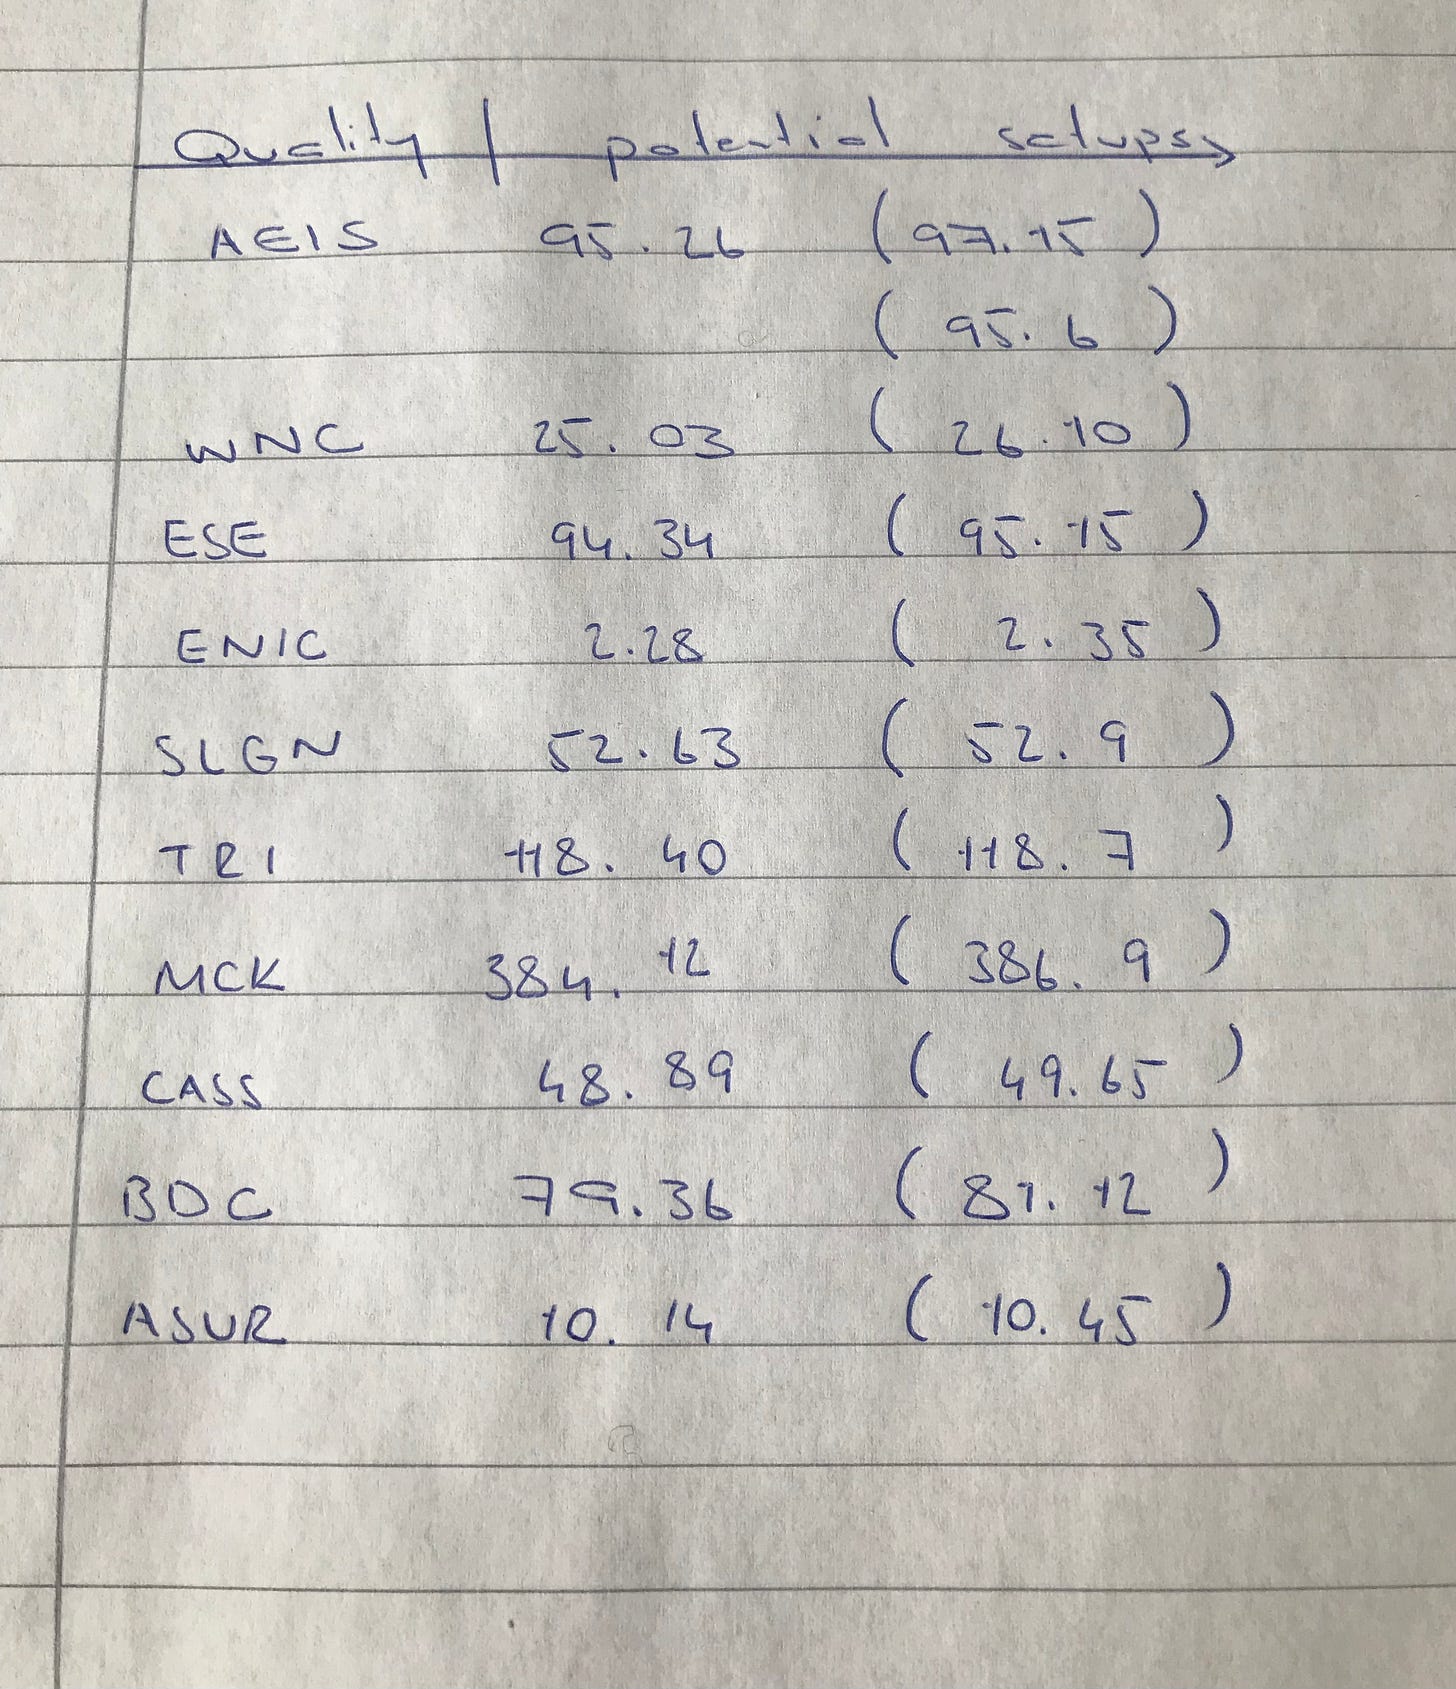 Quality | potential setups
AEIS 95.26 (97.15)
(95.6)
WNC 25.03 (26.10)
ESE 94.34 (95.15)
ENIC 2.28 (2.35)
SLGN 52.63 (52.9)
TRI 118.40 (118.7)
MCK 384.12 (386.9)
CASS 48.89 (49.65)
BDC 79.36 (81.12)
ASUR 10.14 (10.45)